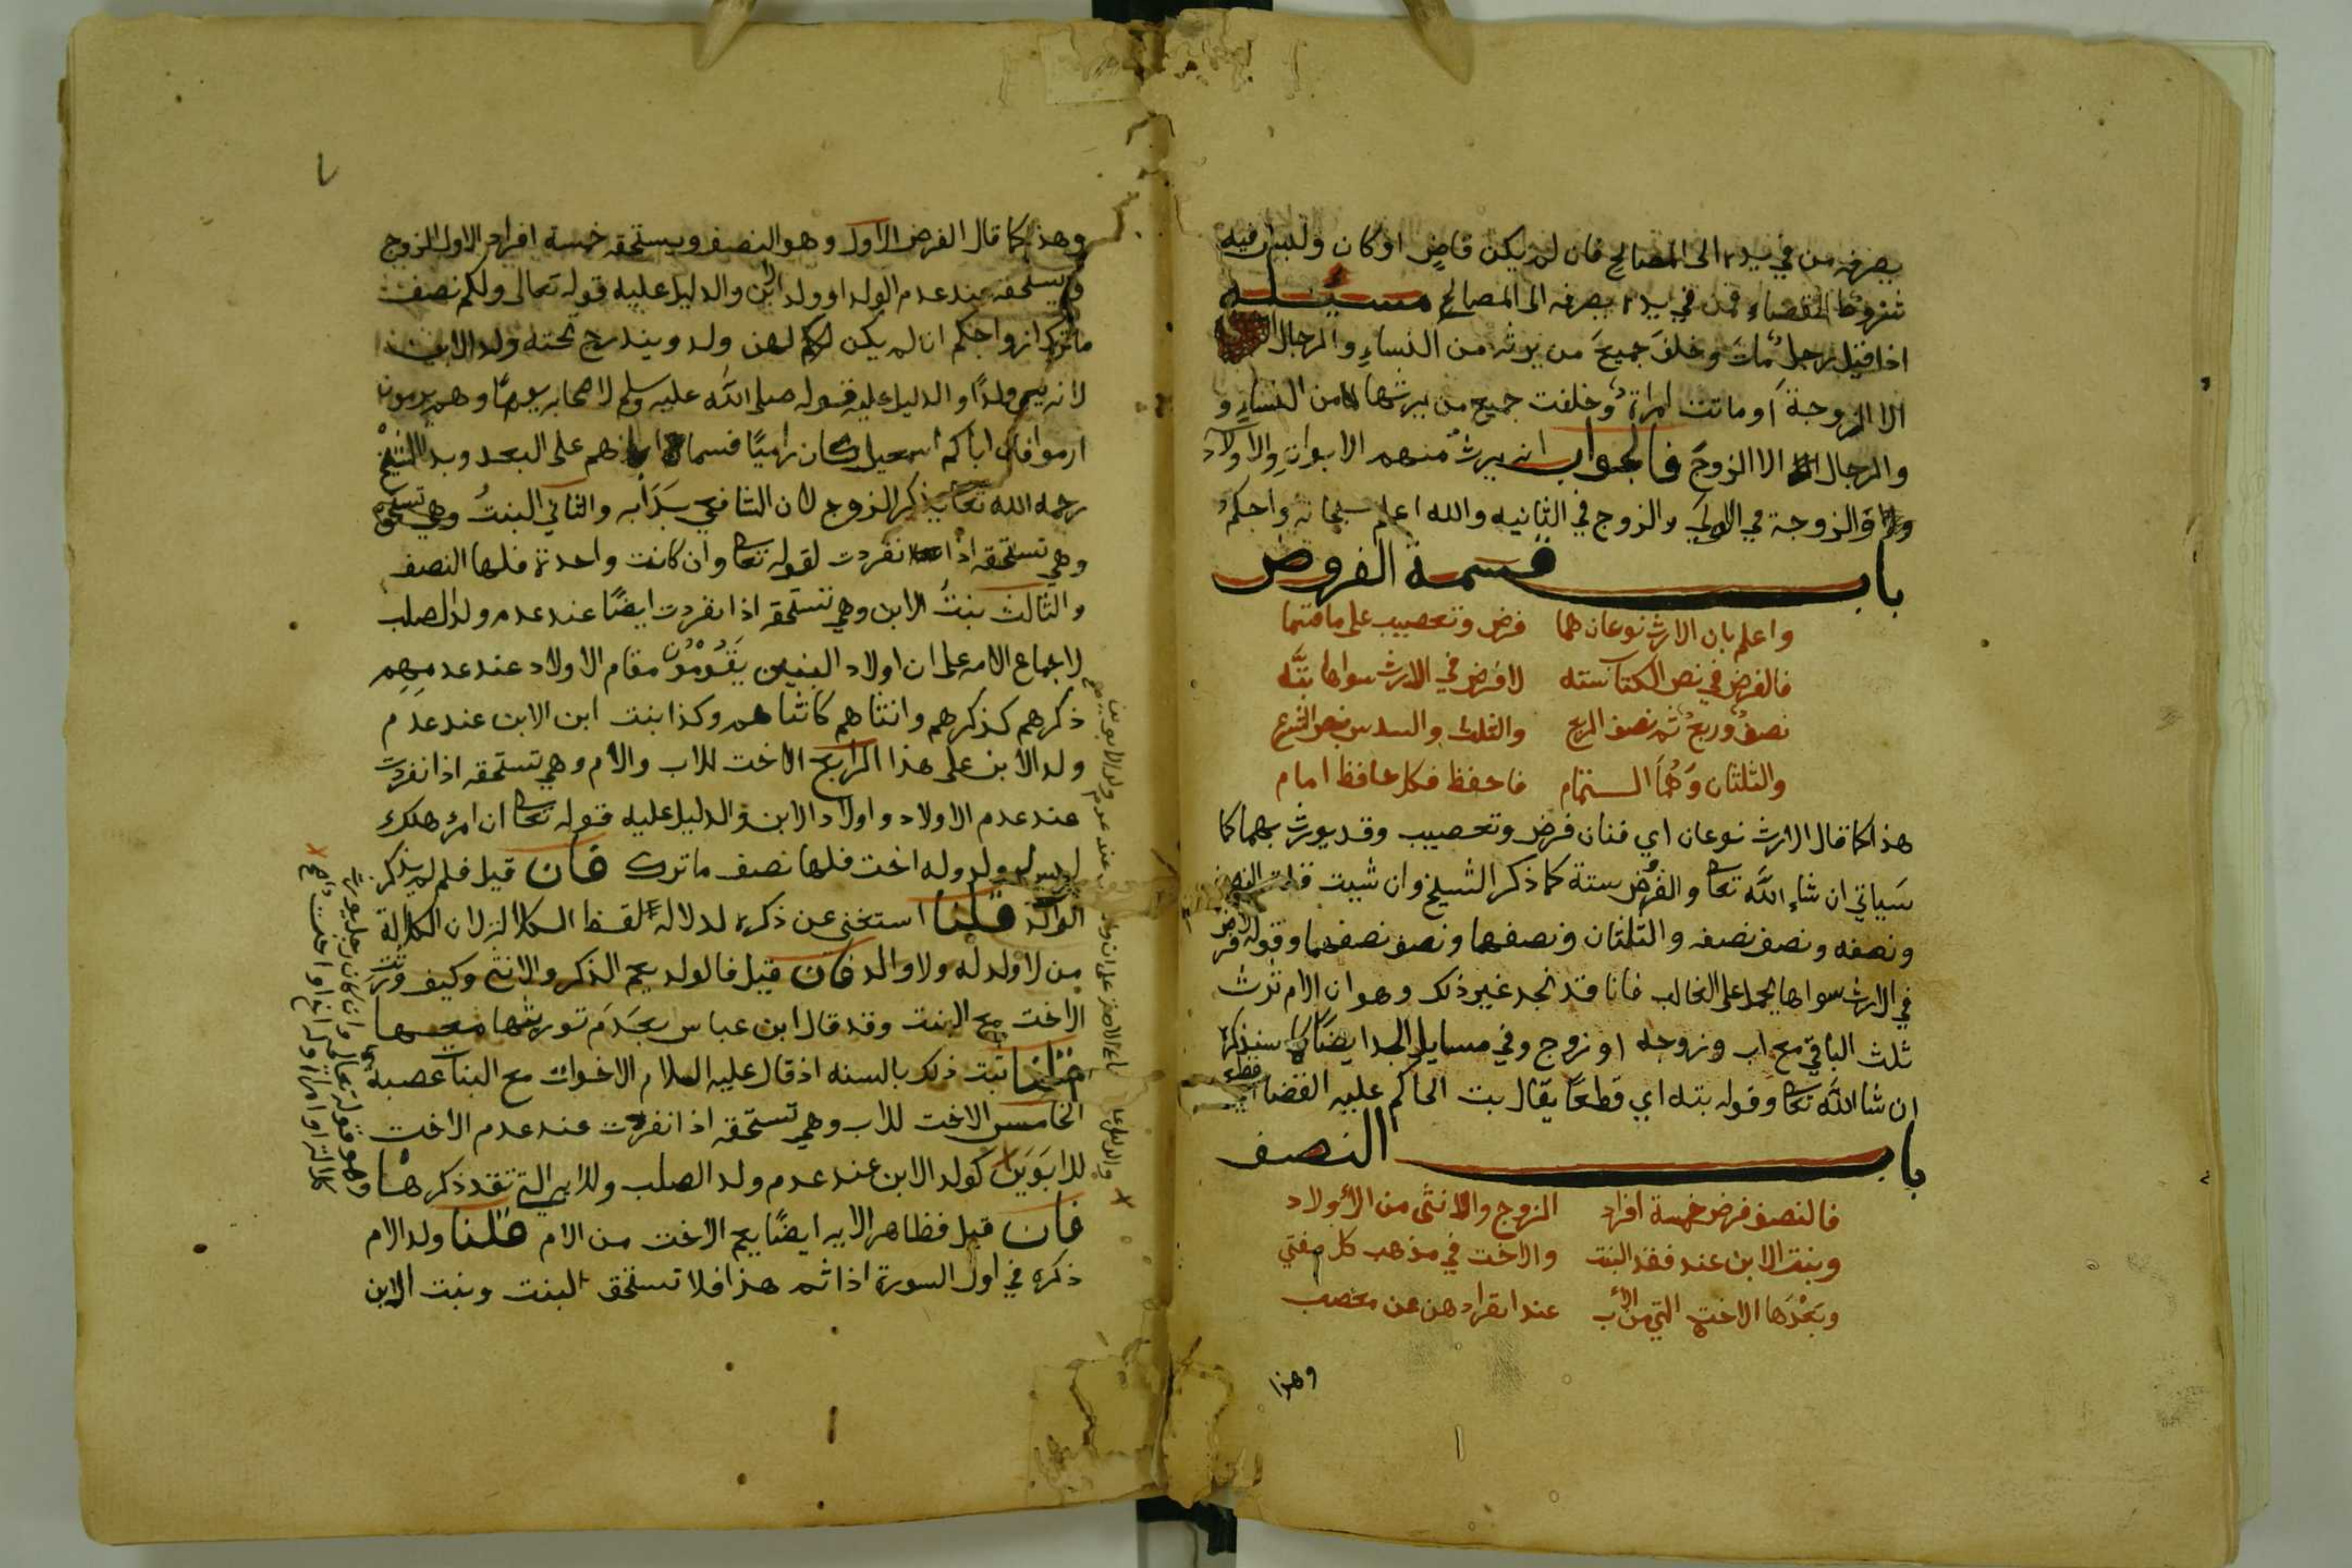 يصرفه من في يده الى المصالح فان لم يكن قاضٍ او كان وليس فيه
شروط القضاء فمن في يده يصرفه الى المصالح مسئلة
اذا قيل رجل مات وخلف جميع من يرثه من النساء والرجال
الا الزوجة أو ماتت امراة وخلفت جميع من يرثها من النساء و
والرجال الا الزوج فالجواب انه يرث منهم الابوان والاولاد
والزوجة في الاولى والزوج في الثانيه والله اعلم سبحانه واحكم
باب قسمة الفروض
واعلم بان الارث نوعان هما فرض وتعصيب على ما قسما
فالفرض في نص الكتاب سته لا فرض في الارث سواها بتّه
نصف وربع ثم نصف الربع والثلث والسدس بنص الشرع
والثلثان وهُما التمام فاحفظ فكل حافظ امام
هذا كما قال الارث نوعان اي فنان فرض وتعصيب وقد يورث بهما كما
سياتي ان شاء الله تعا والفرض ستة كما ذكر الشيخ وان شيت قلت النصف
ونصفه ونصف نصفه والثلثان ونصفهما ونصف نصفهما وقوله لا فرض
في الارث سواها يحمل على الغالب فانا قد نجد غير ذلك وهو ان الام ترث
ثلث الباقي مع اب وزوجه او زوج وفي مسايل الجد ايضًا كما سنذكره
ان شا الله تعا وقوله بته اي قطعًا يقال بت الحاكم عليه القضا اي قطعه
باب النصف
فالنصف فرض خمسة افراد الزوج والانثى من الأولاد
وبنت الابن عند فقد البنت والاخت في مذهب كل مفتي
وبعدها الاخت التي من الأب عند انفرادهن عن معصب
وهذا
وهذا كما قال الفرض الاول وهو النصف ويستحقه خمسة افراد الاول الزوج
ويستحقه عند عدم الولد او ولد الابن والدليل عليه قوله تعالى ولكم نصف
ما ترك ازواجكم ان لم يكن لهن ولد ويندرج تحته ولد الابن
لانه يسمى ولدًا والدليل عليه قوله صلى الله عليه وسلم لاصحابه يومًا وهم يرمون
ارموا فان اباكم اسمعيل كان راميًا فسماه اباهم على البعد وبدا الشيخ
رحمه الله تعا بذكر الزوج لان الشافعي بَدَأ به والثاني البنتُ وهي تستحقه
وهي تستحقه اذا انفردت لقوله تعا وان كانت واحدة فلها النصف
والثالث بنتُ الابن وهي تستحقه اذا انفردت ايضًا عند عدم ولد الصلب
لاجماع الامه على ان اولاد البنين يقومون مقام الاولاد عند عدمهم
ذكرهم كذكرهم وانثاهم كانثاهم وكذا بنت ابن الابن عند عدم
ولد الابن على هذا الرابع الاخت للاب والام وهي تستحقه اذا انفردت
عند عدم الاولاد واولاد الابن والدليل عليه قوله تعا ان امرؤ هلك
ليس له ولد وله اخت فلها نصف ما ترك فان قيل فلم لم يذكر
الوالد قلنا استغنى عن ذكره لدلالة لفظ الكلالة لان الكلالة
من لا ولد له ولا والد فان قيل فالولد يعم الذكر والانثى وكيف ورثت
الاخت مع البنت وقد قال ابن عباس بعَدَم توريثها معها
قلنا ثبت ذلك بالسنه اذ قال عليه السلام الاخوات مع البنات عصبه
الخامس الاخت للاب وهي تستحقه اذا انفردت عند عدم الاخت
للابَوَين كولد الابن عند عدم ولد الصلب وللايه التي تقدم ذكرها
فان قيل فظاهر الايه ايضًا يعم الاخت من الام قلنا ولد الام
ذكره في اول السورة اذا ثم هذا فلا تستحق البنت وبنت الابن
وهو قوله تعالى وان كان رجل يورث
كلالة او امراة وله اخ او اخت